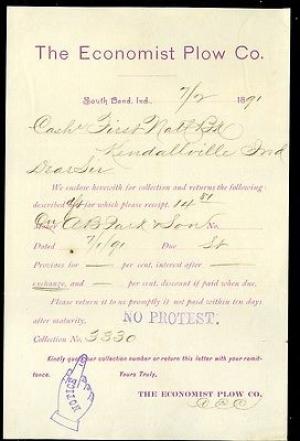 The Economist Plow Co.
South Bend, Ind., 7/2 1891
Cashr First Natl Bk
Kendallville Ind
Dear Sir
We enclose herewith for collection and returns the following
described for which please receipt. 14 81
On Maker A B Park & Son No.
Dated 7/1/91 Due St
Provides for — per cent, interest after —
exchange, and — per cent, discount if paid when due.
Please return it to us promptly if not paid within ten days
after maturity. NO PROTEST.
Collection No. 3330
Kindly quote our collection number or return this letter with your remit-
tance. Yours Truly,
NOTICE
THE ECONOMIST PLOW CO.